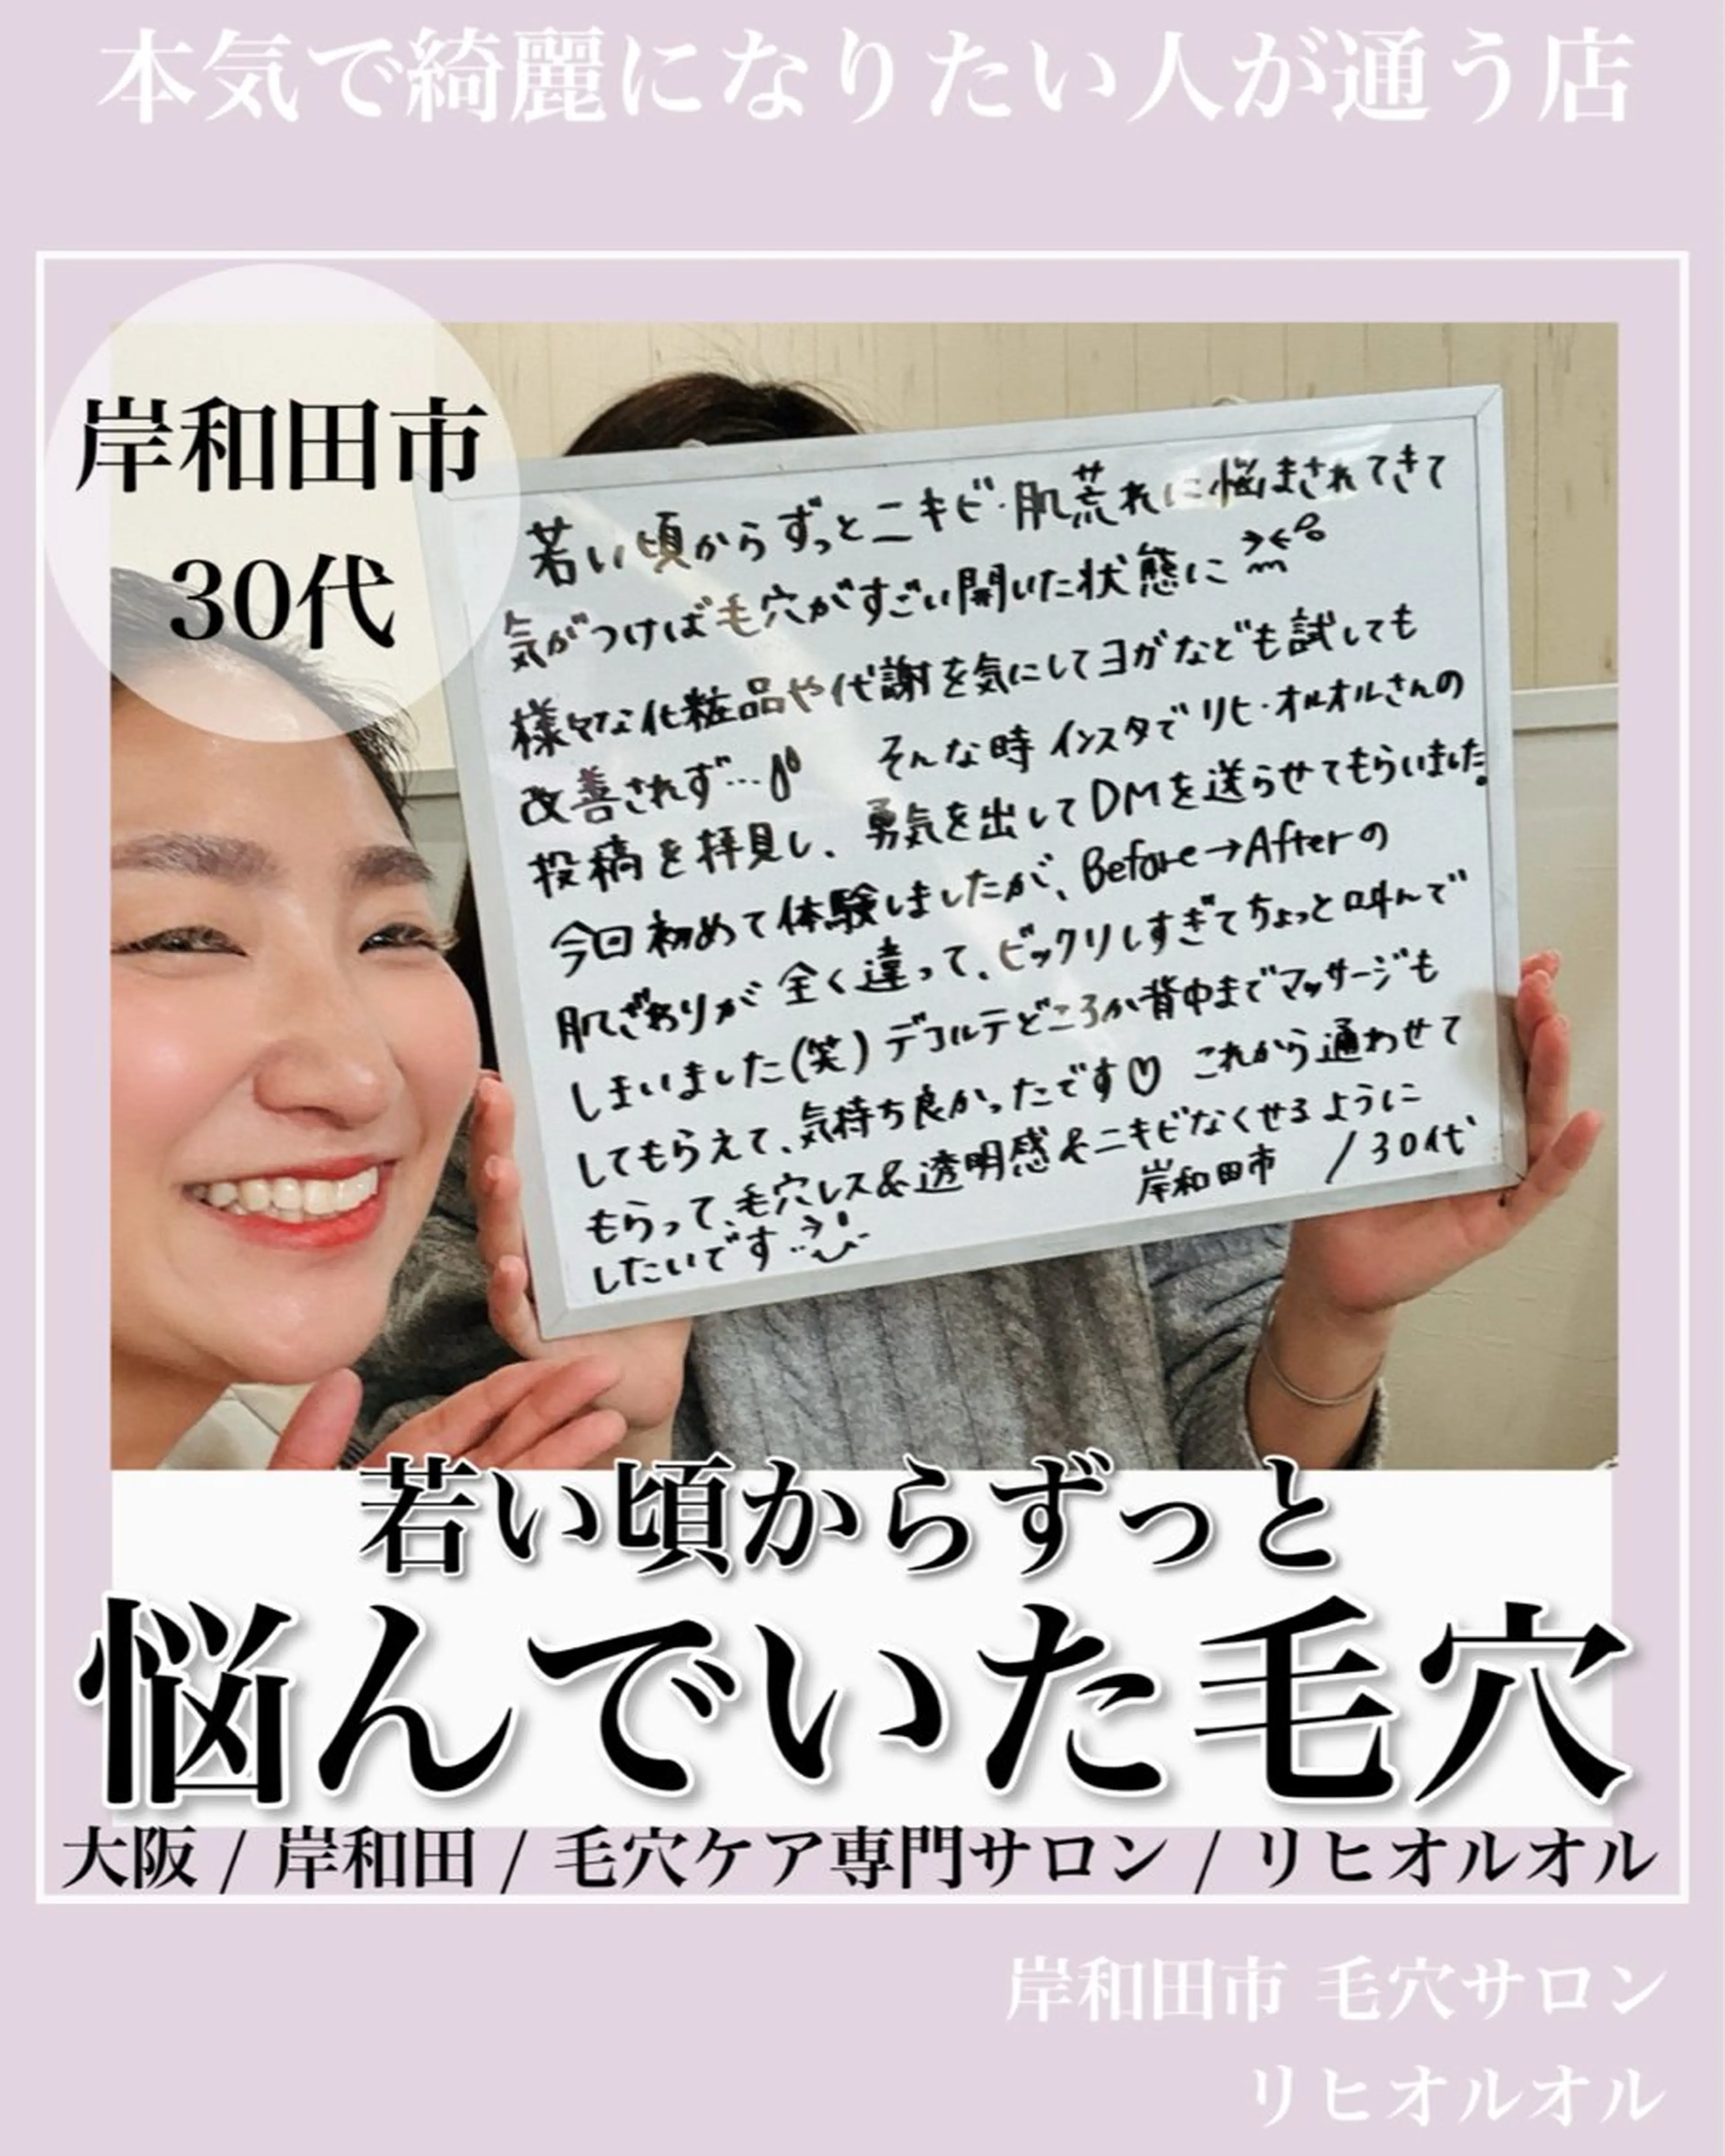 本気で綺麗になりたい人が通う店
岸和田市
30代
若い頃からずっとニキビ・肌荒れに悩まされてきて
気がつけば毛穴がすごい開いた状態に
様々な化粧品や代謝を気にしてヨガなども試しても
改善されず… そんな時インスタでリヒ・オルオルさんの
投稿を拝見し、勇気を出してDMを送らせてもらいました。
今回初めて体験しましたが、Before→Afterの
肌ざわりが全く違って、ビックリしすぎてちょっと叫んで
しまいました(笑)デコルテどころか背中までマッサージも
してもらえて、気持ち良かったです♡ これから通わせて
もらって、毛穴レス&透明感&ニキビなくせるように
したいです
岸和田市 /30代
若い頃からずっと
悩んでいた毛穴
大阪 / 岸和田 / 毛穴ケア専門サロン / リヒオルオル
岸和田市 毛穴サロン
リヒオルオル